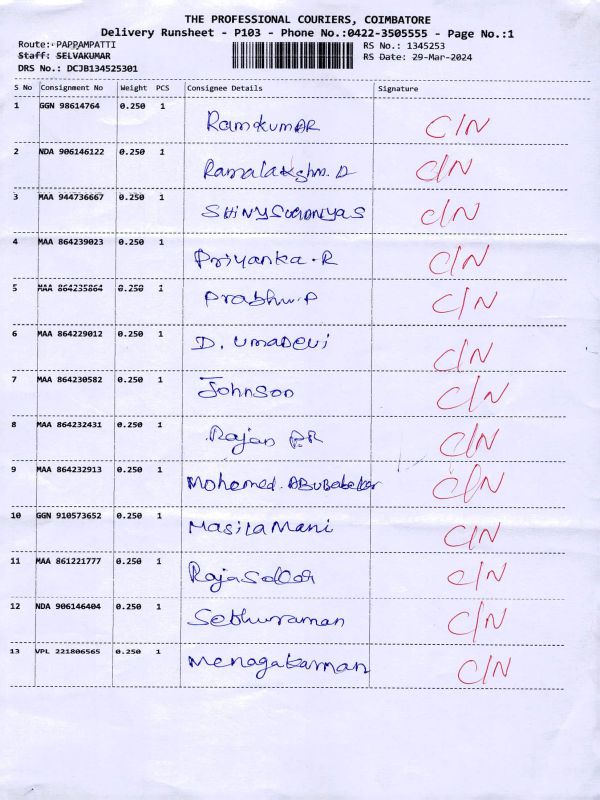 THE PROFESSIONAL COURIERS, COIMBATORE
Delivery Runsheet - P103 - Phone No.:0422-3505555 - Page No.:1
Route: PAPPAMPATTI RS No.: 1345253
Staff: SELVAKUMAR RS Date: 29-Mar-2024
DRS No.: DCJB134525301
S No Consignment No Weight PCS Consignee Details Signature
1 GGN 98614764 0.250 1 Ramkumar C/N
2 NDA 906146122 0.250 1 Ramalakshmi. D C/N
3 MAA 944736667 0.250 1 C/N
4 MAA 864239023 0.250 1 Priyanka.R C/N
5 MAA 864235864 0.250 1 Prabhu.P C/N
6 MAA 864229012 0.250 1 D. UmaDevi C/N
7 MAA 864230582 0.250 1 Johnson C/N
8 MAA 864232431 0.250 1 Rajan P.R C/N
9 MAA 864232913 0.250 1 Mohamed. ABUBabekar C/N
10 GGN 910573652 0.250 1 MasilaMani C/N
11 MAA 861221777 0.250 1 C/N
12 NDA 906146404 0.250 1 Sethuraman C/N
13 VPL 221806565 0.250 1 Menagakannan C/N